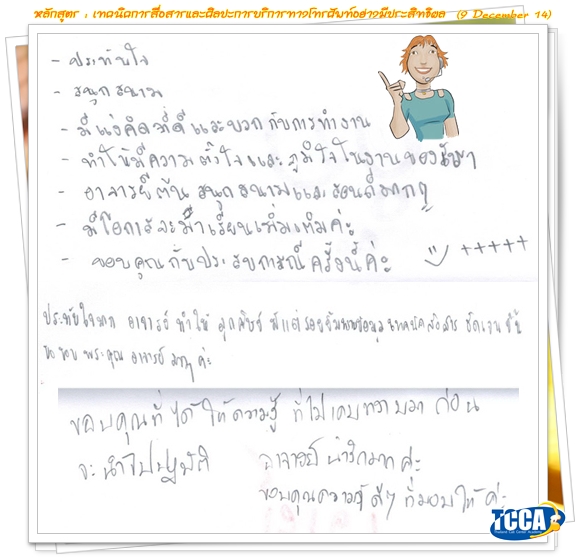 หลักสูตร : เทคนิคการสื่อสารและศิลปะการบริการทางโทรศัพท์อย่างมีประสิทธิผล (9 December 14)
- ประทับใจ
- สนุกสนาน
- มีแง่คิดที่ดีและบวกกับการทำงาน
- ทำให้มีความตั้งใจและภูมิใจในงานของ
- อาจารย์ สนุกสนานและสอนดีมากๆ
- มีโอกาสจะมาเรียนเพิ่มเติมค่ะ
- ขอบคุณกับประสบการณ์ครั้งนี้ค่ะ +++++
ประทับใจมาก อาจารย์ ทำให้ ลูกศิษย์ มีแต่รอยยิ้ม เทคนิคสื่อสาร ชัดเจน
ขอบพระคุณ อาจารย์ มากๆ ค่ะ
ขอบคุณที่ได้ให้ความรู้ ที่ไม่เคยทราบมา ก่อน
จะนำไปปฏิบัติ อาจารย์น่ารักมากค่ะ
ขอบคุณความรู้ ดีๆ ที่มอบให้ค่ะ
TCCA